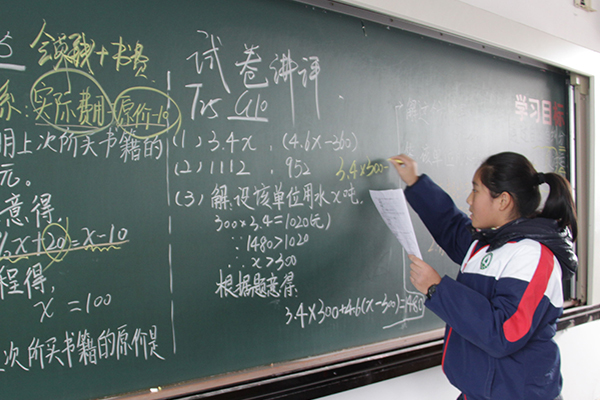 会员钱+书费
系:实际费用=原价-10
明上次所买书籍的
元。
意得,
%x+20=x-10
程得,
x=100
次所买书籍的原价是
试卷讲评
T25 G10
(1) 3.4x , (4.6x-360)
(2) 1112 , 952
3.4×300-
(3) 解:设该单位用水x吨.
300×3.4=1020(元)
∵1480>1020
∴x>300
根据题意得
3.4×300+4.6(x-300)=1480
学习目标